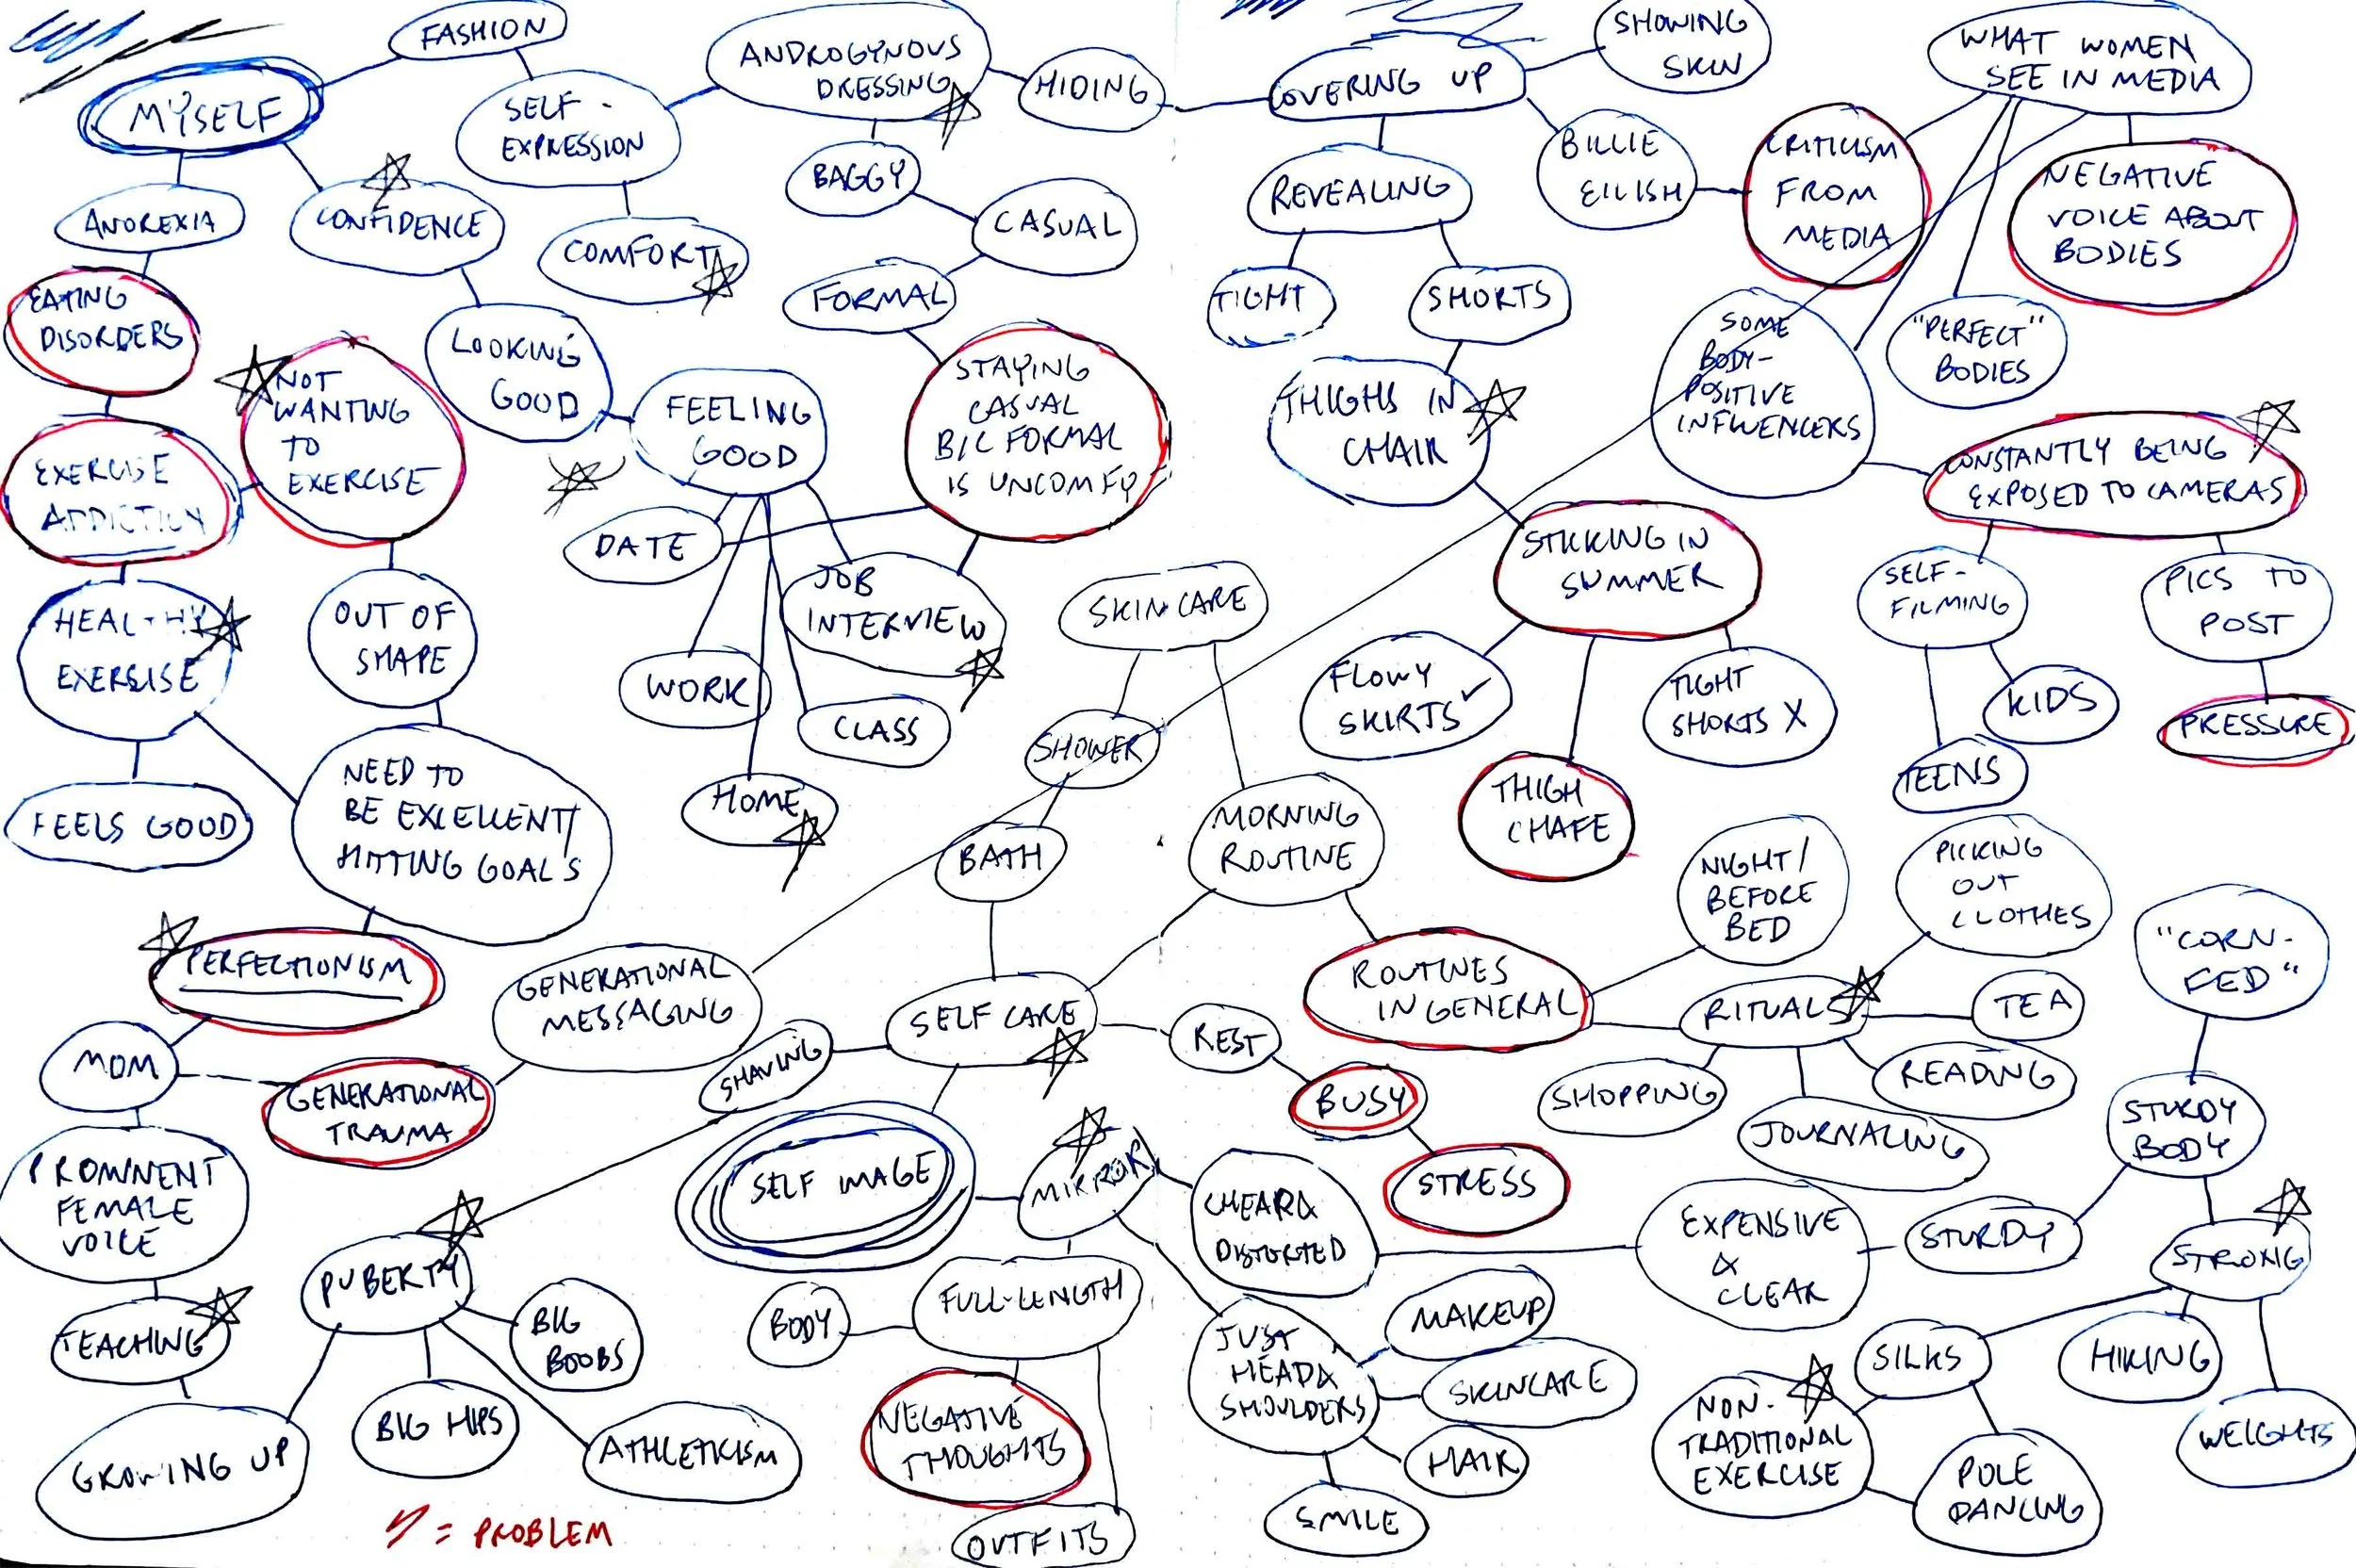 FASHION
MYSELF
SELF-
EXPRESSION
ANDROGYNOUS
DRESSING
HIDING
COVERING UP
SHOWING
SKIN
WHAT WOMEN
SEE IN MEDIA
ANOREXIA
CONFIDENCE
COMFORT
BAGGY
CASUAL
FORMAL
REVEALING
BILLIE
EILISH
CRITICISM
FROM
MEDIA
NEGATIVE
VOICE ABOUT
BODIES
EATING
DISORDERS
LOOKING
GOOD
TIGHT
SHORTS
SOME
BODY-
POSITIVE
INFLUENCERS
"PERFECT"
BODIES
NOT
WANTING
TO
EXERCISE
FEELING
GOOD
STAYING
CASUAL
B/C FORMAL
IS UNCOMFY
THIGHS IN
CHAIR
CONSTANTLY BEING
EXPOSED TO CAMERAS
EXERCISE
ADDICTION
DATE
JOB
INTERVIEW
STICKING IN
SUMMER
SELF-
FILMING
PICS TO
POST
HEALTHY
EXERCISE
OUT OF
SHAPE
WORK
CLASS
HOME
SKINCARE
SHOWER
FLOWY
SKIRTS ✓
TIGHT
SHORTS X
KIDS
PRESSURE
TEENS
FEELS GOOD
NEED TO
BE EXCELLENT/
HITTING GOALS
BATH
MORNING
ROUTINE
THIGH
CHAFE
NIGHT/
BEFORE
BED
PICKING
OUT
CLOTHES
"CORN-
FED"
PERFECTIONISM
GENERATIONAL
MESSAGING
SELF CARE
REST
ROUTINES
IN GENERAL
RITUALS
TEA
MOM
GENERATIONAL
TRAUMA
SHAVING
BUSY
SHOPPING
READING
JOURNALING
STURDY
BODY
PROMINENT
FEMALE
VOICE
SELF IMAGE
MIRROR
CHEAP &
DISTORTED
STRESS
EXPENSIVE
&
CLEAR
STURDY
STRONG
TEACHING
PUBERTY
BIG
BOOBS
BODY
FULL-LENGTH
JUST
HEAD &
SHOULDERS
MAKEUP
SKINCARE
SILKS
HIKING
GROWING UP
BIG HIPS
ATHLETICISM
NEGATIVE
THOUGHTS
HAIR
SMILE
NON-
TRADITIONAL
EXERCISE
POLE
DANCING
WEIGHTS
= PROBLEM
OUTFITS